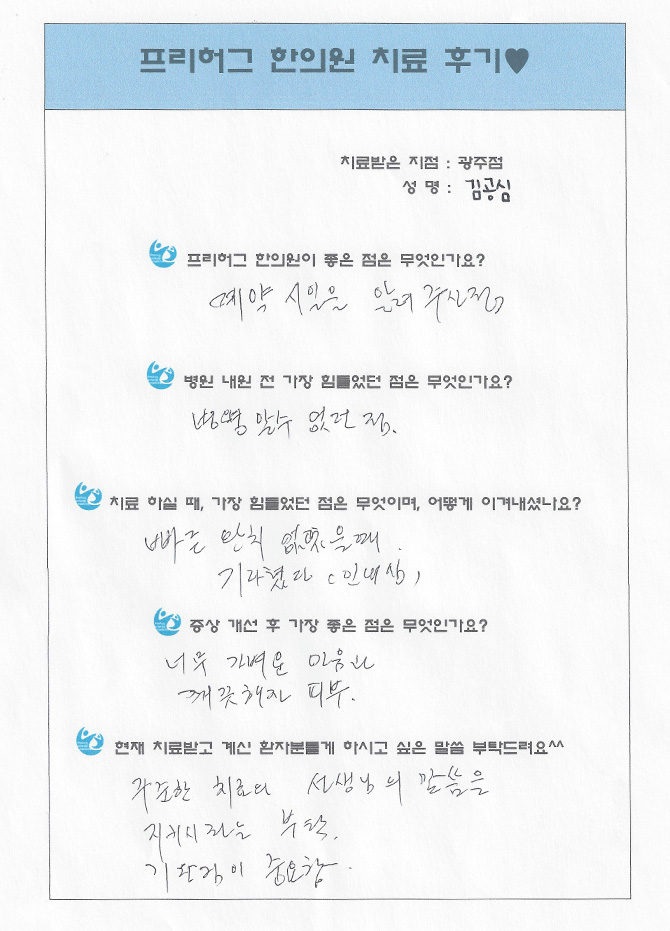 프리허그 한의원 치료 후기♥
치료받은 지점 : 광주점
성 명 : 김공심
프리허그 한의원이 좋은 점은 무엇인가요?
예약 시일을 알려 주신점
병원 내원 전 가장 힘들었던 점은 무엇인가요?
병명 알수 없던 점.
치료 하실 때, 가장 힘들었던 점은 무엇이며, 어떻게 이겨내셨나요?
빠른 완치 없었을때.
기다렸다 (인내심)
증상 개선 후 가장 좋은 점은 무엇인가요?
너무 가벼운 마음과
깨끗해진 피부.
현재 치료받고 계신 환자분들게 하시고 싶은 말씀 부탁드려요^^
꾸준한 치료와 선생님의 말씀을
지키시라는 부탁.
이 중요함.